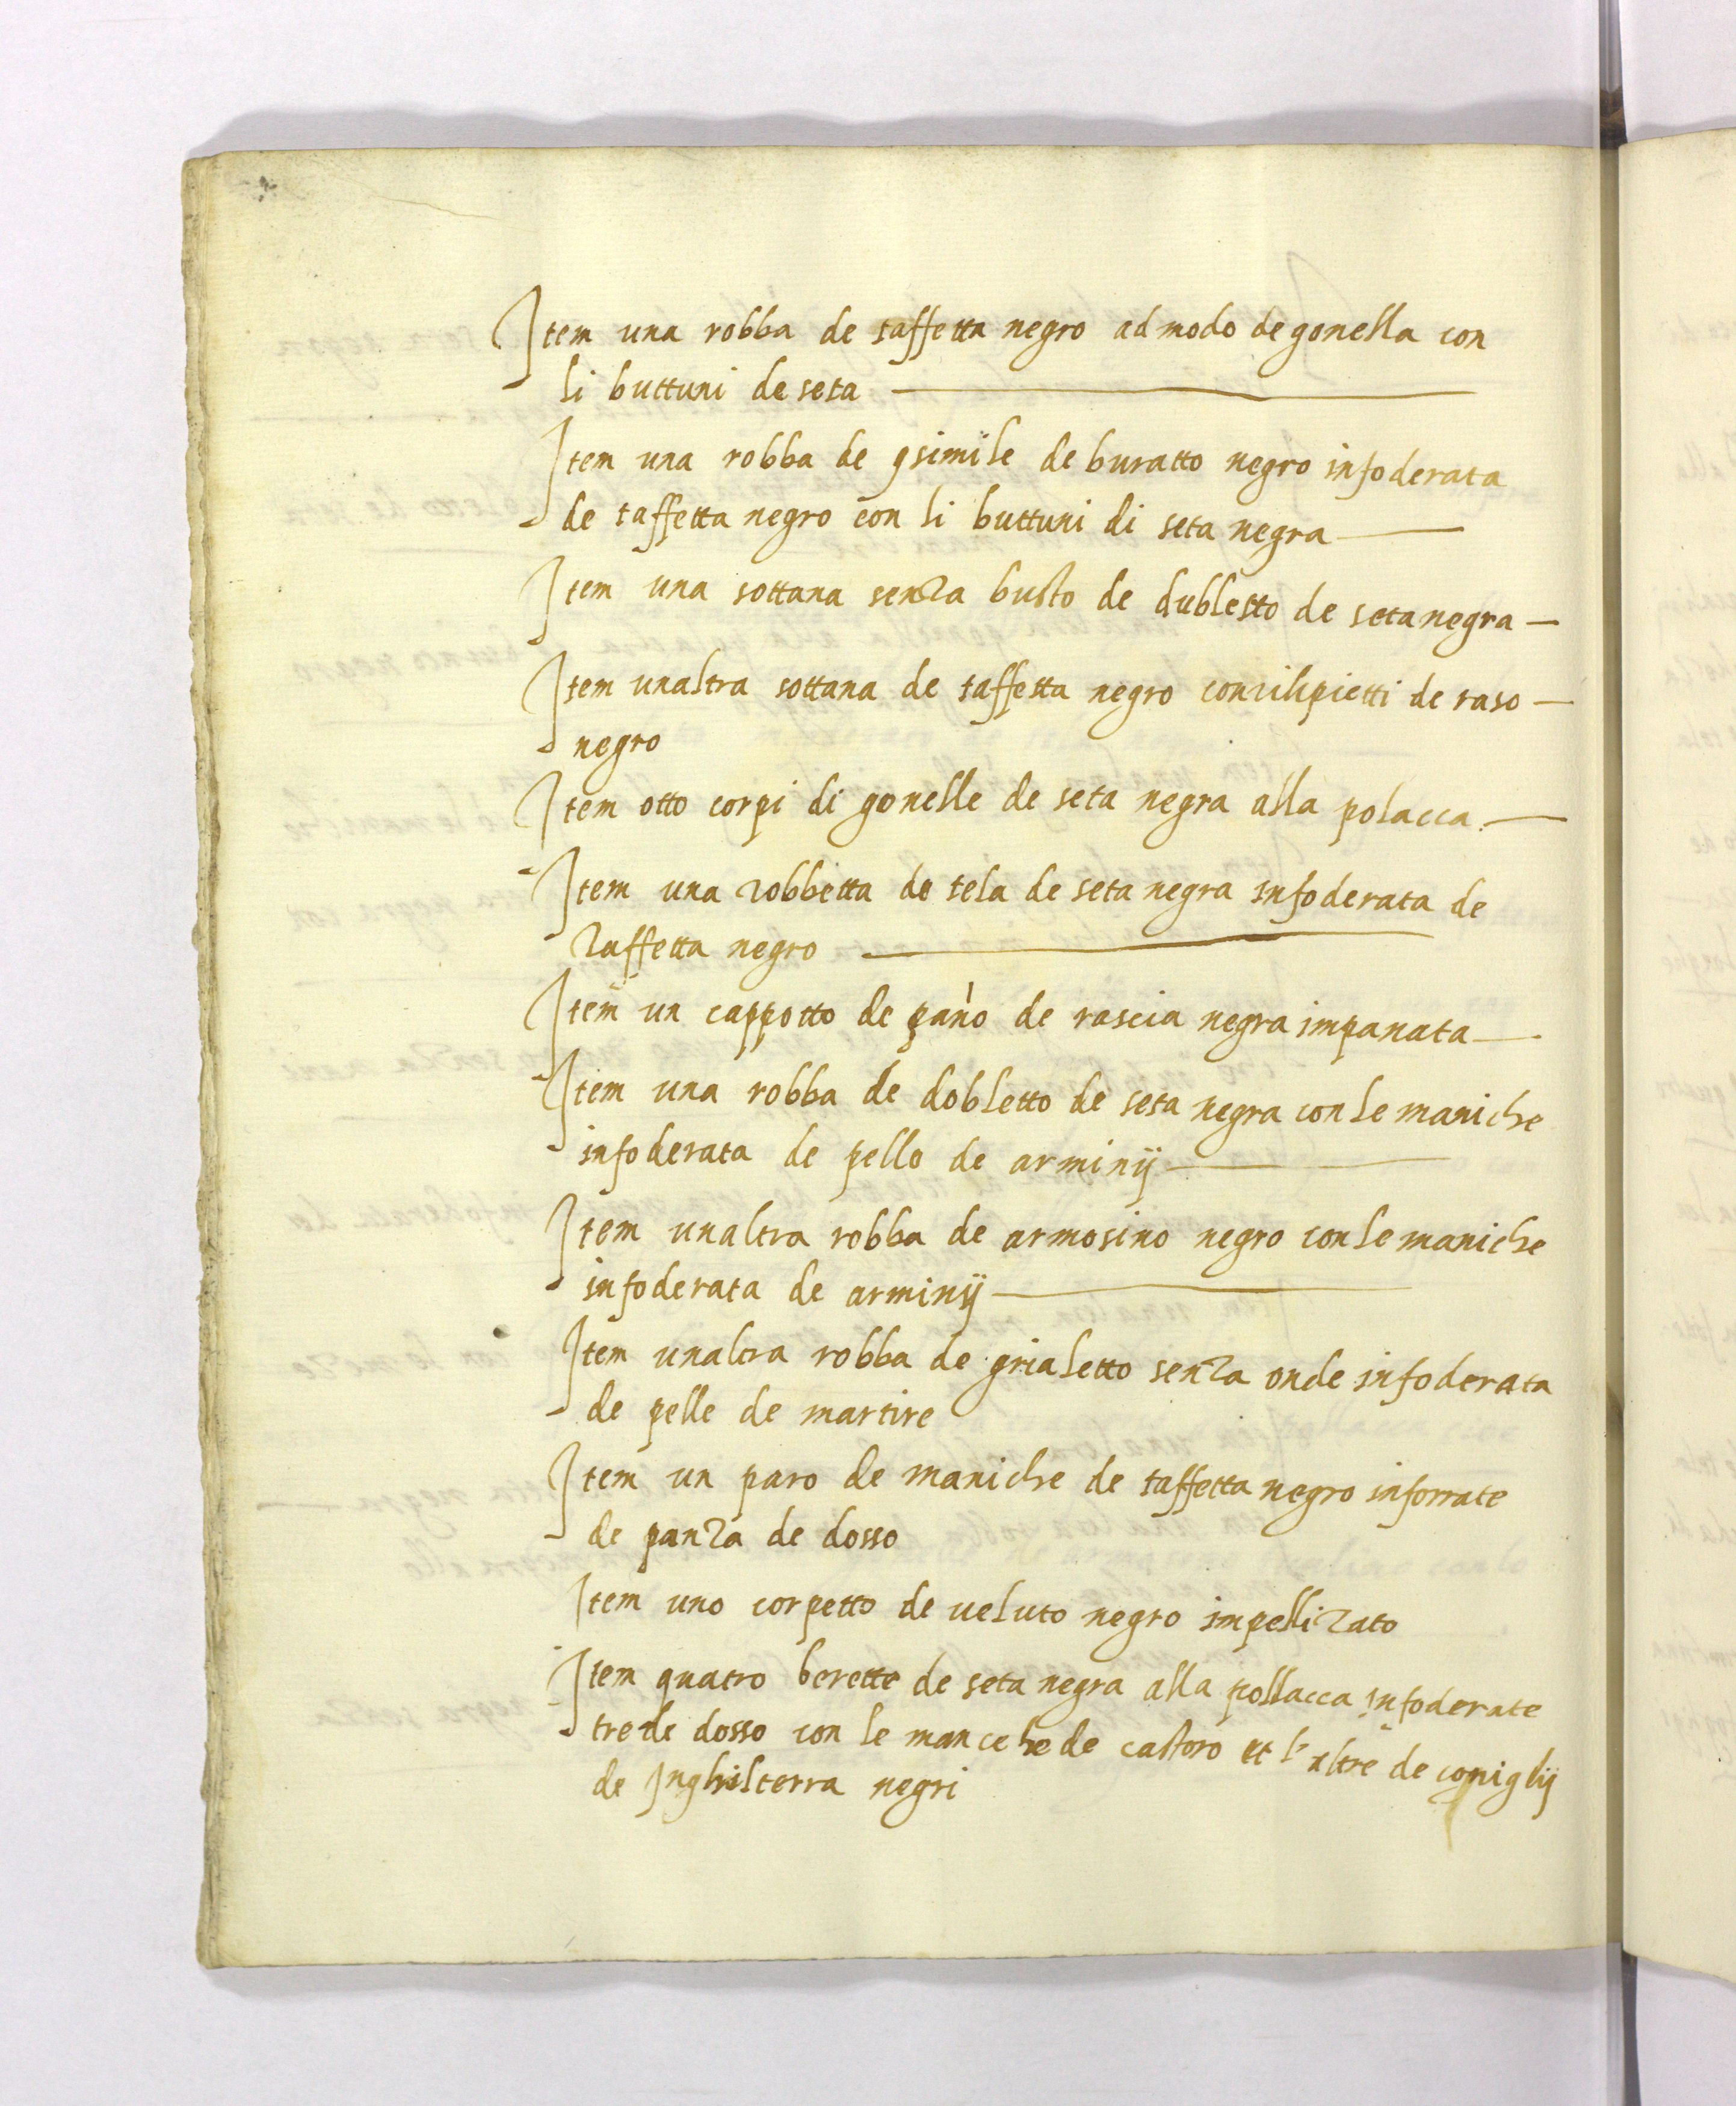 Item una robba de taffetta negro ad modo de gonella con
li buttuni de seta
Item una robba de gsimile de buratto negro infoderata
de taffetta negro con li buttuni di seta negra
Item una sottana senza busto de dubletto de seta negra
Item unaltra sottana de taffetta negro de raso
negro
Item otto corpi di gonelle de seta negra alla polacca
Item una robbetta de tela de seta negra infoderata de
taffetta negro
Item un cappotto de pano de rascia negra impanata
Item una robba de dobletto de seta negra con le maniche
infoderata de pelle de arminij
Item unaltra robba de armosino negro con le maniche
infoderata de arminij
Item unaltra robba de grialetto senza onde infoderata
de pelle de martire
Item un paro de maniche de taffetta negro inforrate
de panza de dosso
Item uno corpetto de veluto negro impellizato
Item quatro berette de seta negra alla pollacca infoderate
tre de dosso con le mancehe de castoro et l'altre de coniglij
de Inghilterra negri